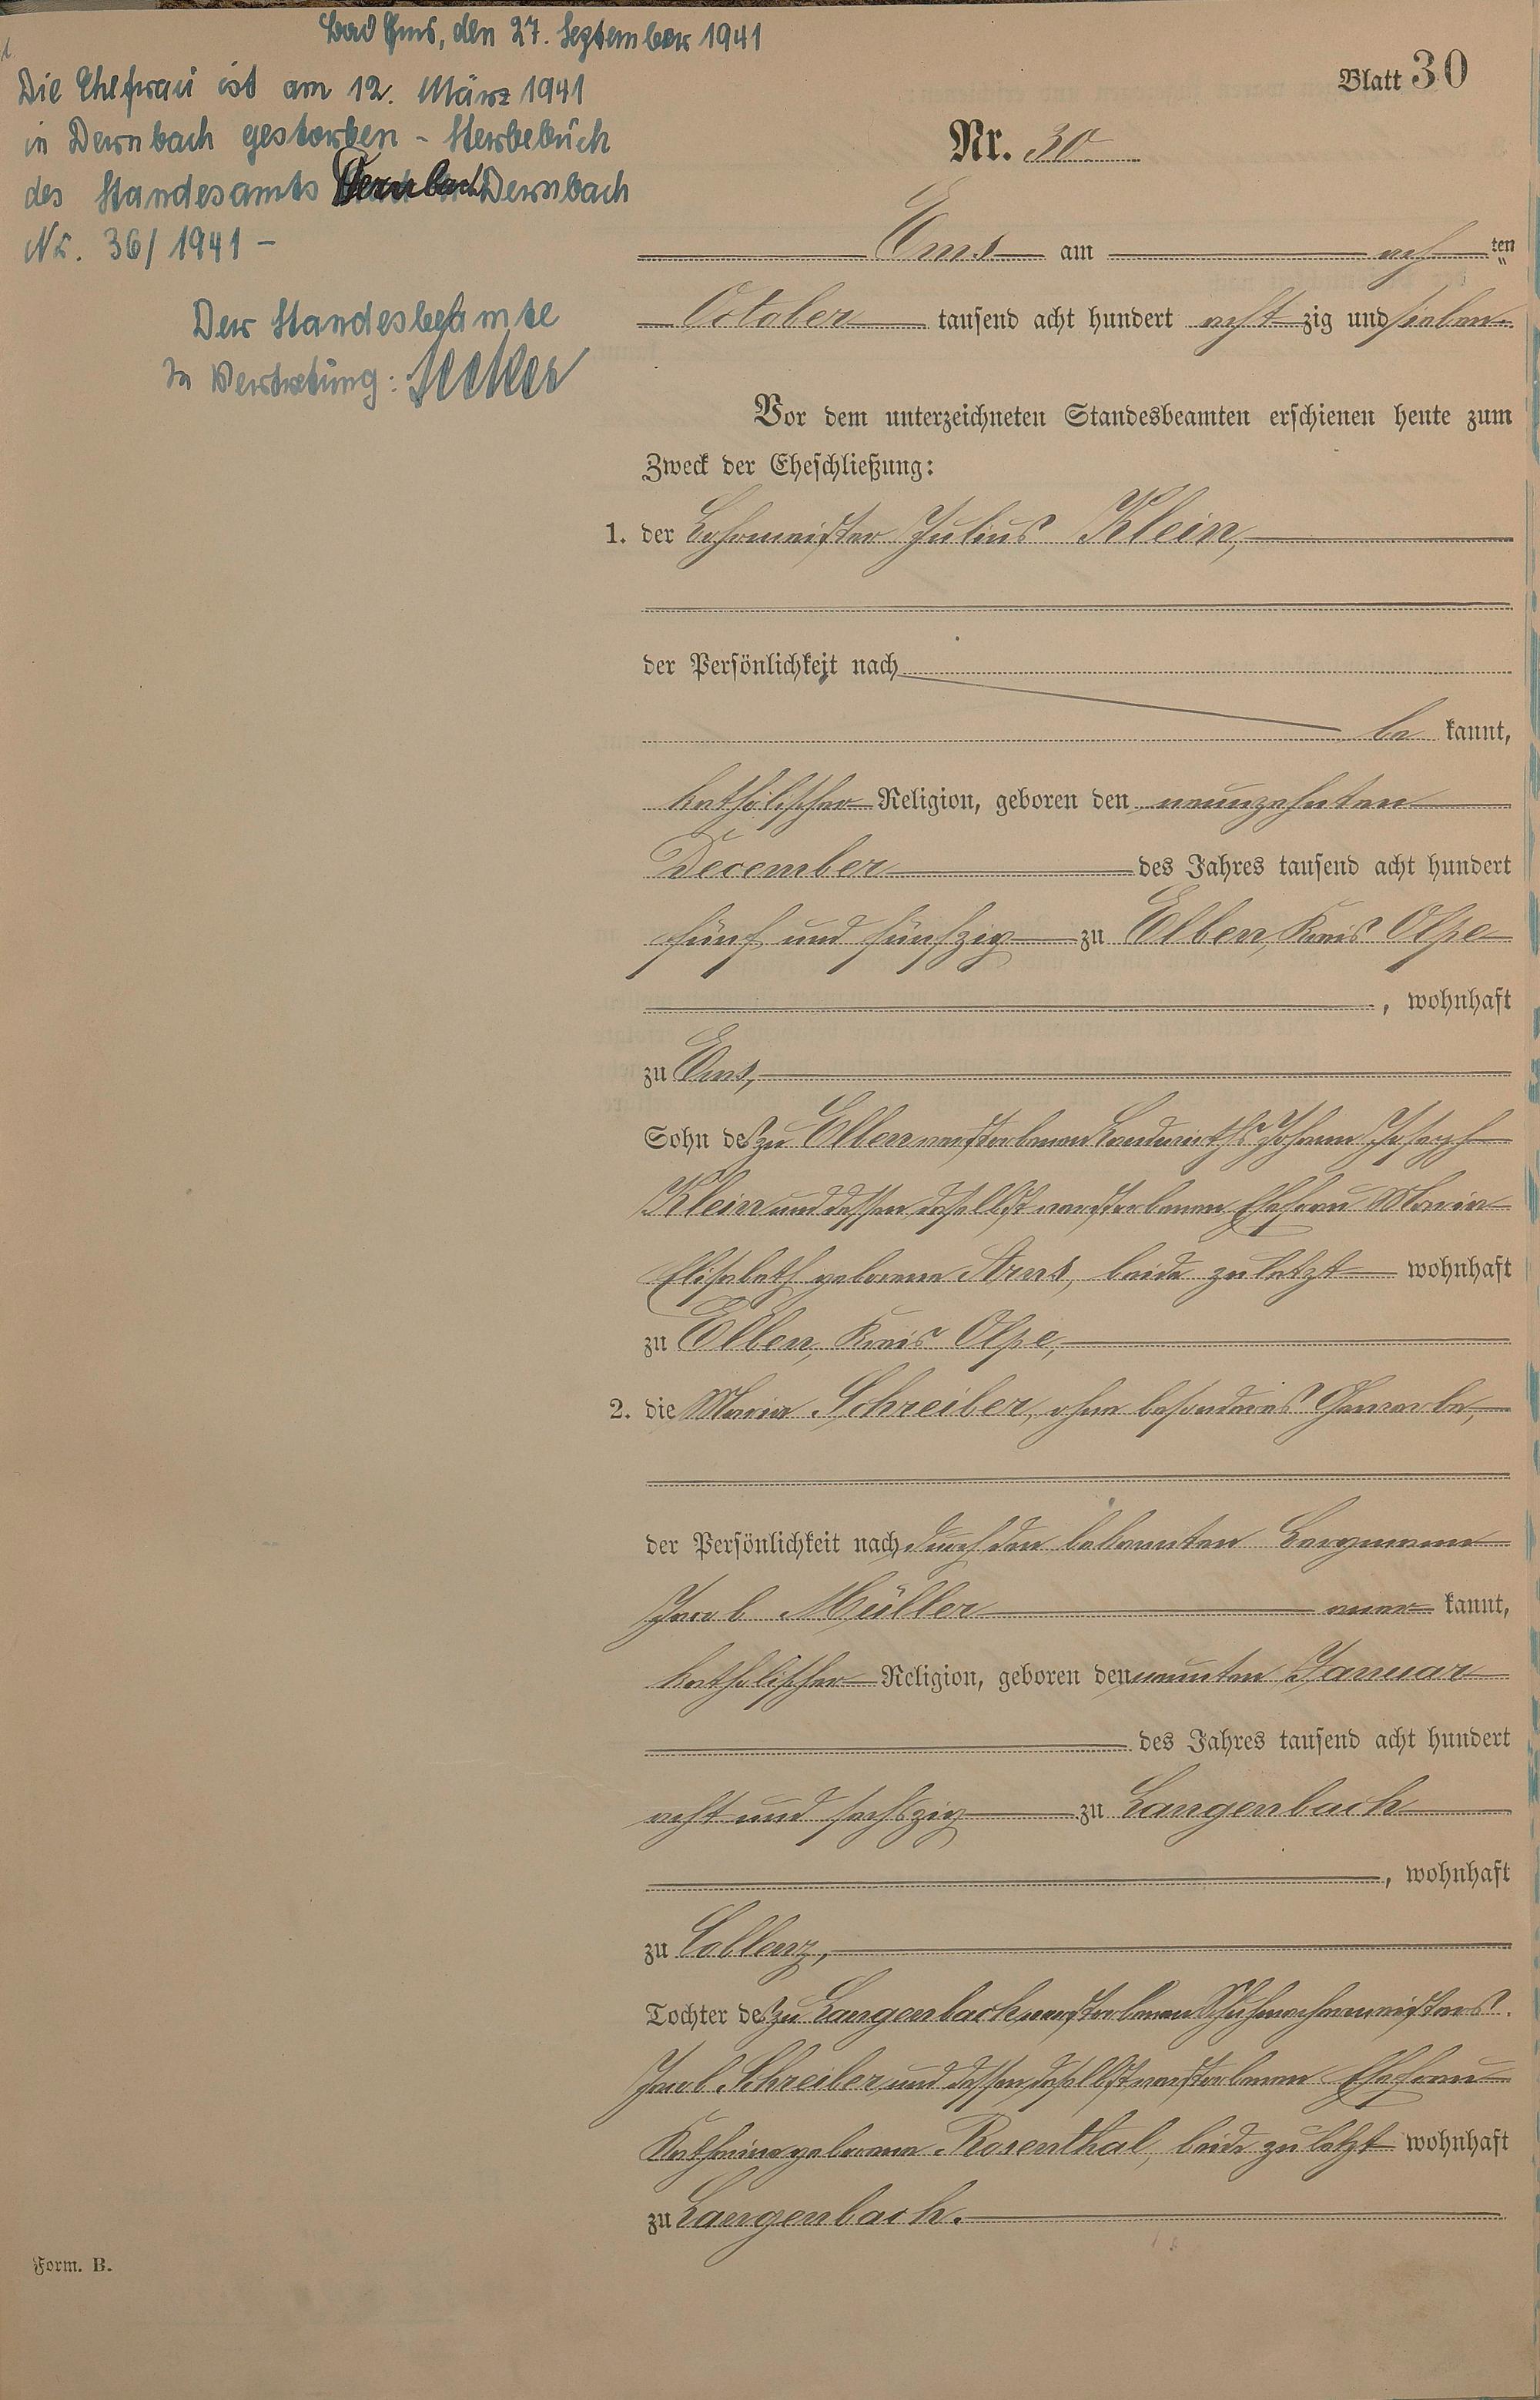 Bad Ems, den 27. September 1941
Die Ehefrau ist am 12. März 1941
in Dernbach gestorben - Sterbebuch
des Standesamts Dernbach Dernbach
Nr. 36/1941 -
Der Standesbeamte
In Vertretung:
Blatt 30
Nr. 30
Ems am ach ten
October tausend acht hundert acht zig und sieben
Vor dem unterzeichneten Standesbeamten erschienen heute zum
Zweck der Eheschließung:
1. der Julius Klein,
der Persönlichkeit nach
be kannt,
katholischer Religion, geboren den neunzehnten
December des Jahres tausend acht hundert
fünf und fünfzig zu Elben, Kreis Olpe
, wohnhaft
zu Ems,
Sohn des zu Elben verstorbenen Landwirths Johann Joseph
Klein und dessen daselbst verstorbenen Ehefrau Maria
Elisabeth geborene Arns, beide zuletzt wohnhaft
zu Elben, Kreis Olpe,
2. die Maria Schreiber, ohne besonderes Gewerbe,
der Persönlichkeit nach durch den bekannten Bergmann
Jacob Müller aner kannt,
katholischer Religion, geboren den neunten Januar
des Jahres tausend acht hundert
acht und sechszig zu Langenbach
, wohnhaft
zu Coblenz,
Tochter des zu Langenbach verstorbenen Schuhmachermeisters
Jacob Schreiber und dessen daselbst verstorbenen Ehefrau
Katharina geborene Rosenthal, beide zuletzt wohnhaft
zu Langenbach.
Form. B.